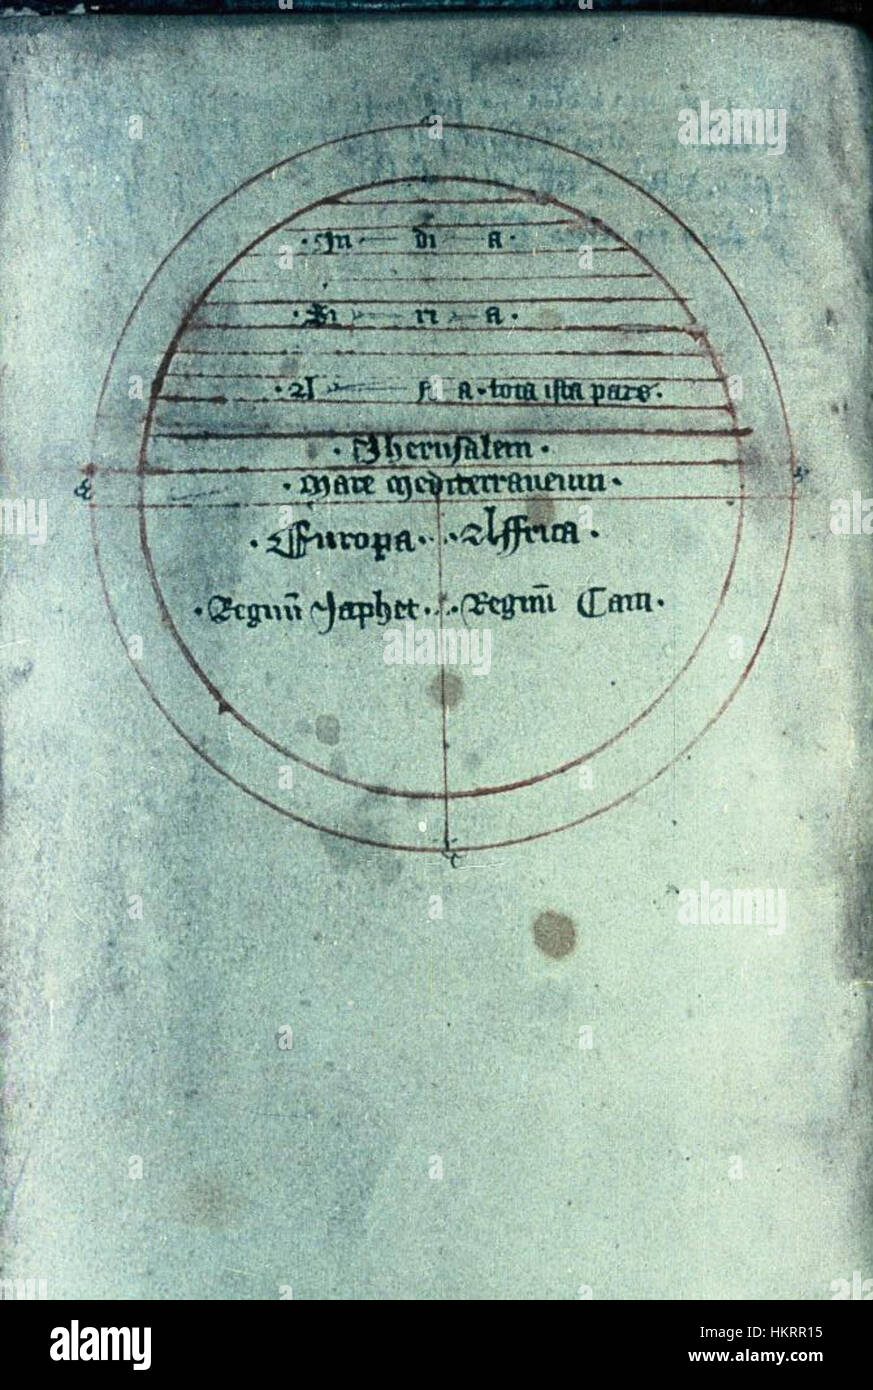 ·In di a·
·Si ri a·
·A s a·tota ista pars·
·Iherusalem·
·Mare Mediterraneum·
·Europa· ·Affrica·
·Regnū Japhet· ·Regnū Cam·
alamy
alamy
alamy
alamy
alamy
alamy stock photo
HKRR15
www.alamy.com